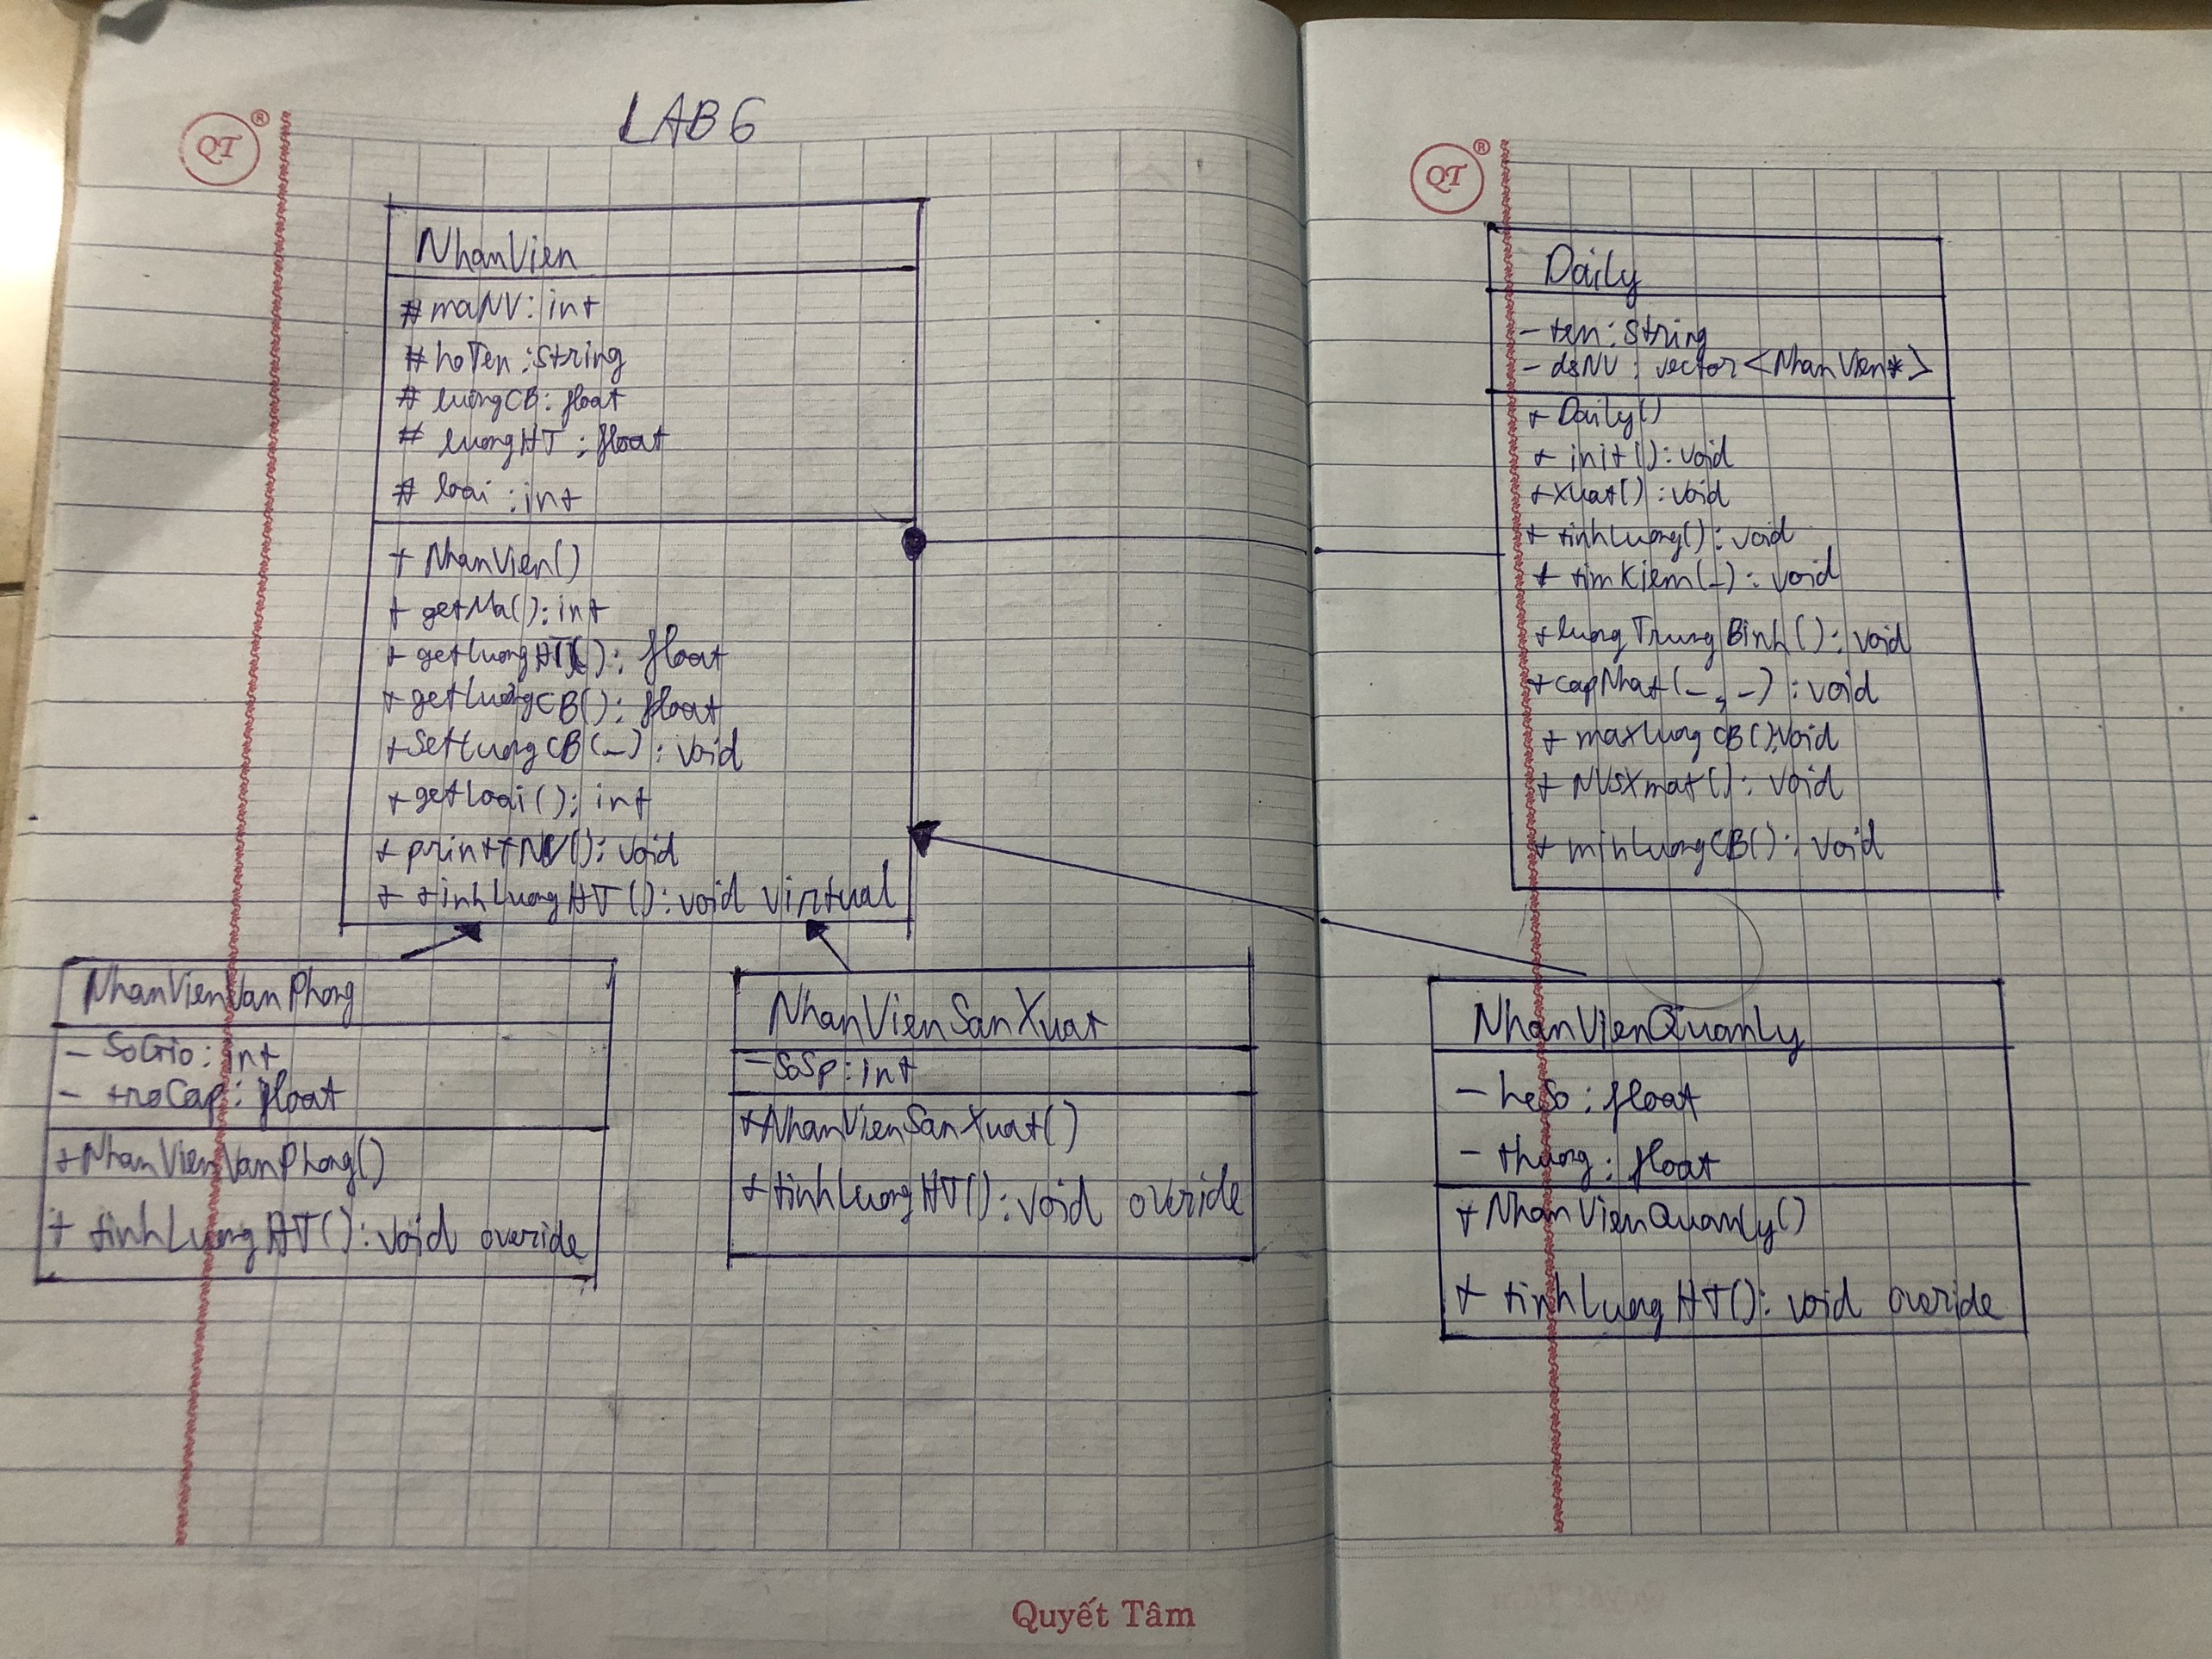 QT ®
LAB 6
NhanVien
# maNV: int
# hoTen: String
# luongCB: float
# luongHT: float
# loai: int
+ NhanVien()
+ getMa(): int
+ getLuongHT(): float
+ getLuongCB(): float
+ SetLuongCB(_): void
+ getLoai(): int
+ printTNV(): void
+ tinhLuongHT(): void virtual
NhanVienVanPhong
- SoGio: int
- troCap: float
+ NhanVienVanPhong()
+ tinhLuongHT(): void overide
NhanVienSanXuat
- SoSp: int
+ NhanVienSanXuat()
+ tinhLuongHT(): void overide
Quyết Tâm
QT ®
Daily
- ten: String
- dsNV: vector<NhanVien*>
+ Daily()
+ init(): void
+ xuat(): void
+ tinhLuong(): void
+ timKiem(_): void
+ luongTrungBinh(): void
+ capNhat(_,_): void
+ maxLuongCB():void
+ NVSXmat(): void
+ minLuongCB(): void
NhanVienQuanLy
- heSo: float
- thuong: float
+ NhanVienQuanLy()
+ tinhLuongHT(): void overide